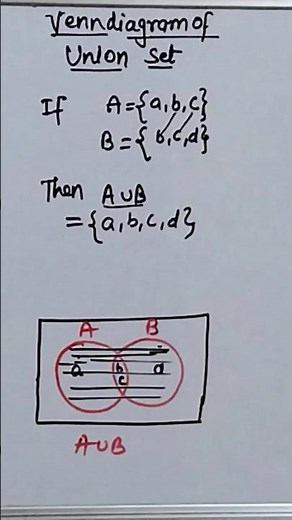 Venndiagram of
Union Set
If A={a,b,c}
B={b,c,d}
Then A∪B
={a,b,c,d}
A B
a b d
c
A∪B